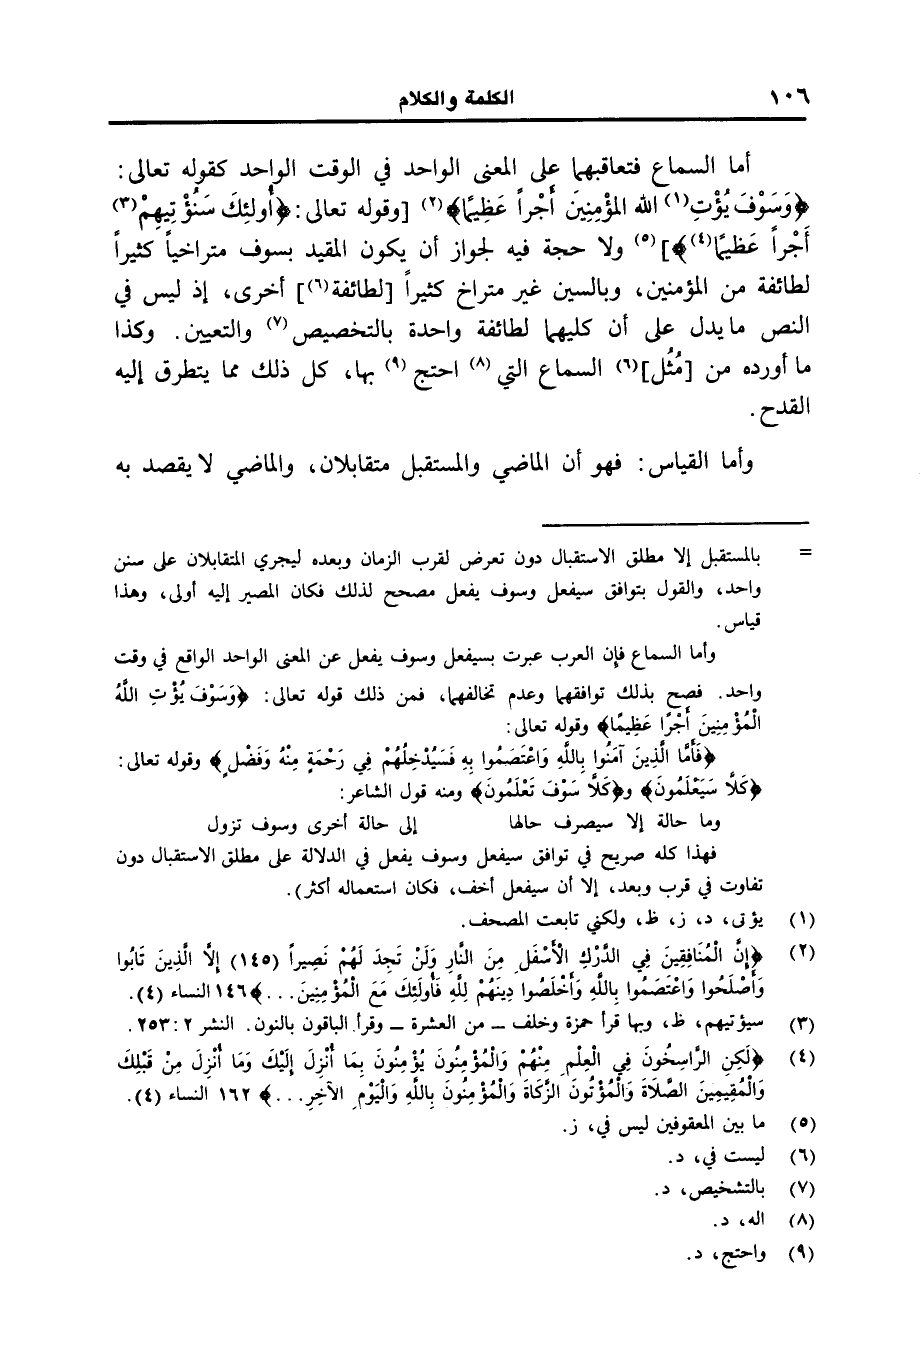 ١٠٦ الكلمة والكلام
أما السماع فتعاقبهما على المعنى الواحد في الوقت الواحد كقوله تعالى:
﴿وَسَوْفَ يُؤْتِ(١) الله المؤْمِنِينَ أَجْراً عَظِيمًا﴾(٢) [وقوله تعالى: ﴿أُولئِكَ سَنُؤْتِيهِمْ(٣)
أَجْراً عَظيمًا(٤)﴾](٥) ولا حجة فيه لجواز أن يكون المقيد بسوف متراخياً كثيراً
لطائفة من المؤمنين، وبالسين غير متراخ كثيراً [لطائفة(٦)] أخرى، إذ ليس في
النص ما يدل على أن كليهما لطائفة واحدة بالتخصيص(٧) والتعيين. وكذا
ما أورده من [مُثُل](٦) السماع التي(٨) احتج(٩) بها، كل ذلك مما يتطرق إليه
القدح.
وأما القياس: فهو أن الماضي والمستقبل متقابلان، والماضي لا يقصد به
= بالمستقبل إلا مطلق الاستقبال دون تعرض لقرب الزمان وبعده ليجري المتقابلان على سنن
واحد، والقول بتوافق سيفعل وسوف يفعل مصحح لذلك فكان المصير إليه أولى، وهذا
قياس.
وأما السماع فإن العرب عبرت بسيفعل وسوف يفعل عن المعنى الواحد الواقع في وقت
واحد. فصح بذلك توافقهما وعدم تخالفهما، فمن ذلك قوله تعالى: ﴿وَسَوْفَ يُؤْتِ اللَّهُ
الْمُؤْمِنِينَ أَجْرًا عَظِيمًا﴾ وقوله تعالى:
﴿فَأَمَّا الَّذِينَ آمَنُوا بِاللَّهِ وَاعْتَصَمُوا بِهِ فَسَيُدْخِلُهُمْ فِي رَحْمَةٍ مِنْهُ وَفَضْلٍ﴾ وقوله تعالى:
﴿كَلَّا سَيَعْلَمُونَ﴾ و﴿كَلَّا سَوْفَ تَعْلَمُونَ﴾ ومنه قول الشاعر:
وما حالة إلا سيصرف حالها إلى حالة أخرى وسوف تزول
فهذا كله صريح في توافق سيفعل وسوف يفعل في الدلالة على مطلق الاستقبال دون
تفاوت في قرب وبعد، إلا أن سيفعل أخف، فكان استعماله أكثر).
(١) يؤتى، د، ز، ظ، ولكني تابعت المصحف.
(٢) ﴿إِنَّ الْمُنَافِقِينَ فِي الدَّرْكِ الْأَسْفَلِ مِنَ النَّارِ وَلَنْ تَجِدَ لَهُمْ نَصِيراً (١٤٥) إِلَّا الَّذِينَ تَابُوا
وَأَصْلَحُوا وَاعْتَصَمُوا بِاللَّهِ وَأَخْلَصُوا دِينَهُمْ لِلَّهِ فَأُولَئِكَ مَعَ الْمُؤْمِنِينَ...﴾ ١٤٦ النساء (٤).
(٣) سيؤتيهم، ظ، وبها قرأ حمزة وخلف ــ من العشرة ــ وقرأ الباقون بالنون. النشر ٢: ٢٥٣.
(٤) ﴿لَكِنِ الرَّاسِخُونَ فِي الْعِلْمِ مِنْهُمْ وَالْمُؤْمِنُونَ يُؤْمِنُونَ بِمَا أُنْزِلَ إِلَيْكَ وَمَا أُنْزِلَ مِنْ قَبْلِكَ
وَالْمُقِيمِينَ الصَّلَاةَ وَالْمُؤْتُونَ الزَّكَاةَ وَالْمُؤْمِنُونَ بِاللَّهِ وَالْيَوْمِ الآخِرِ...﴾ ١٦٢ النساء (٤).
(٥) ما بين المعقوفين ليس في، ز.
(٦) ليست في، د.
(٧) بالتشخيص، د.
(٨) اله، د.
(٩) واحتج، د.